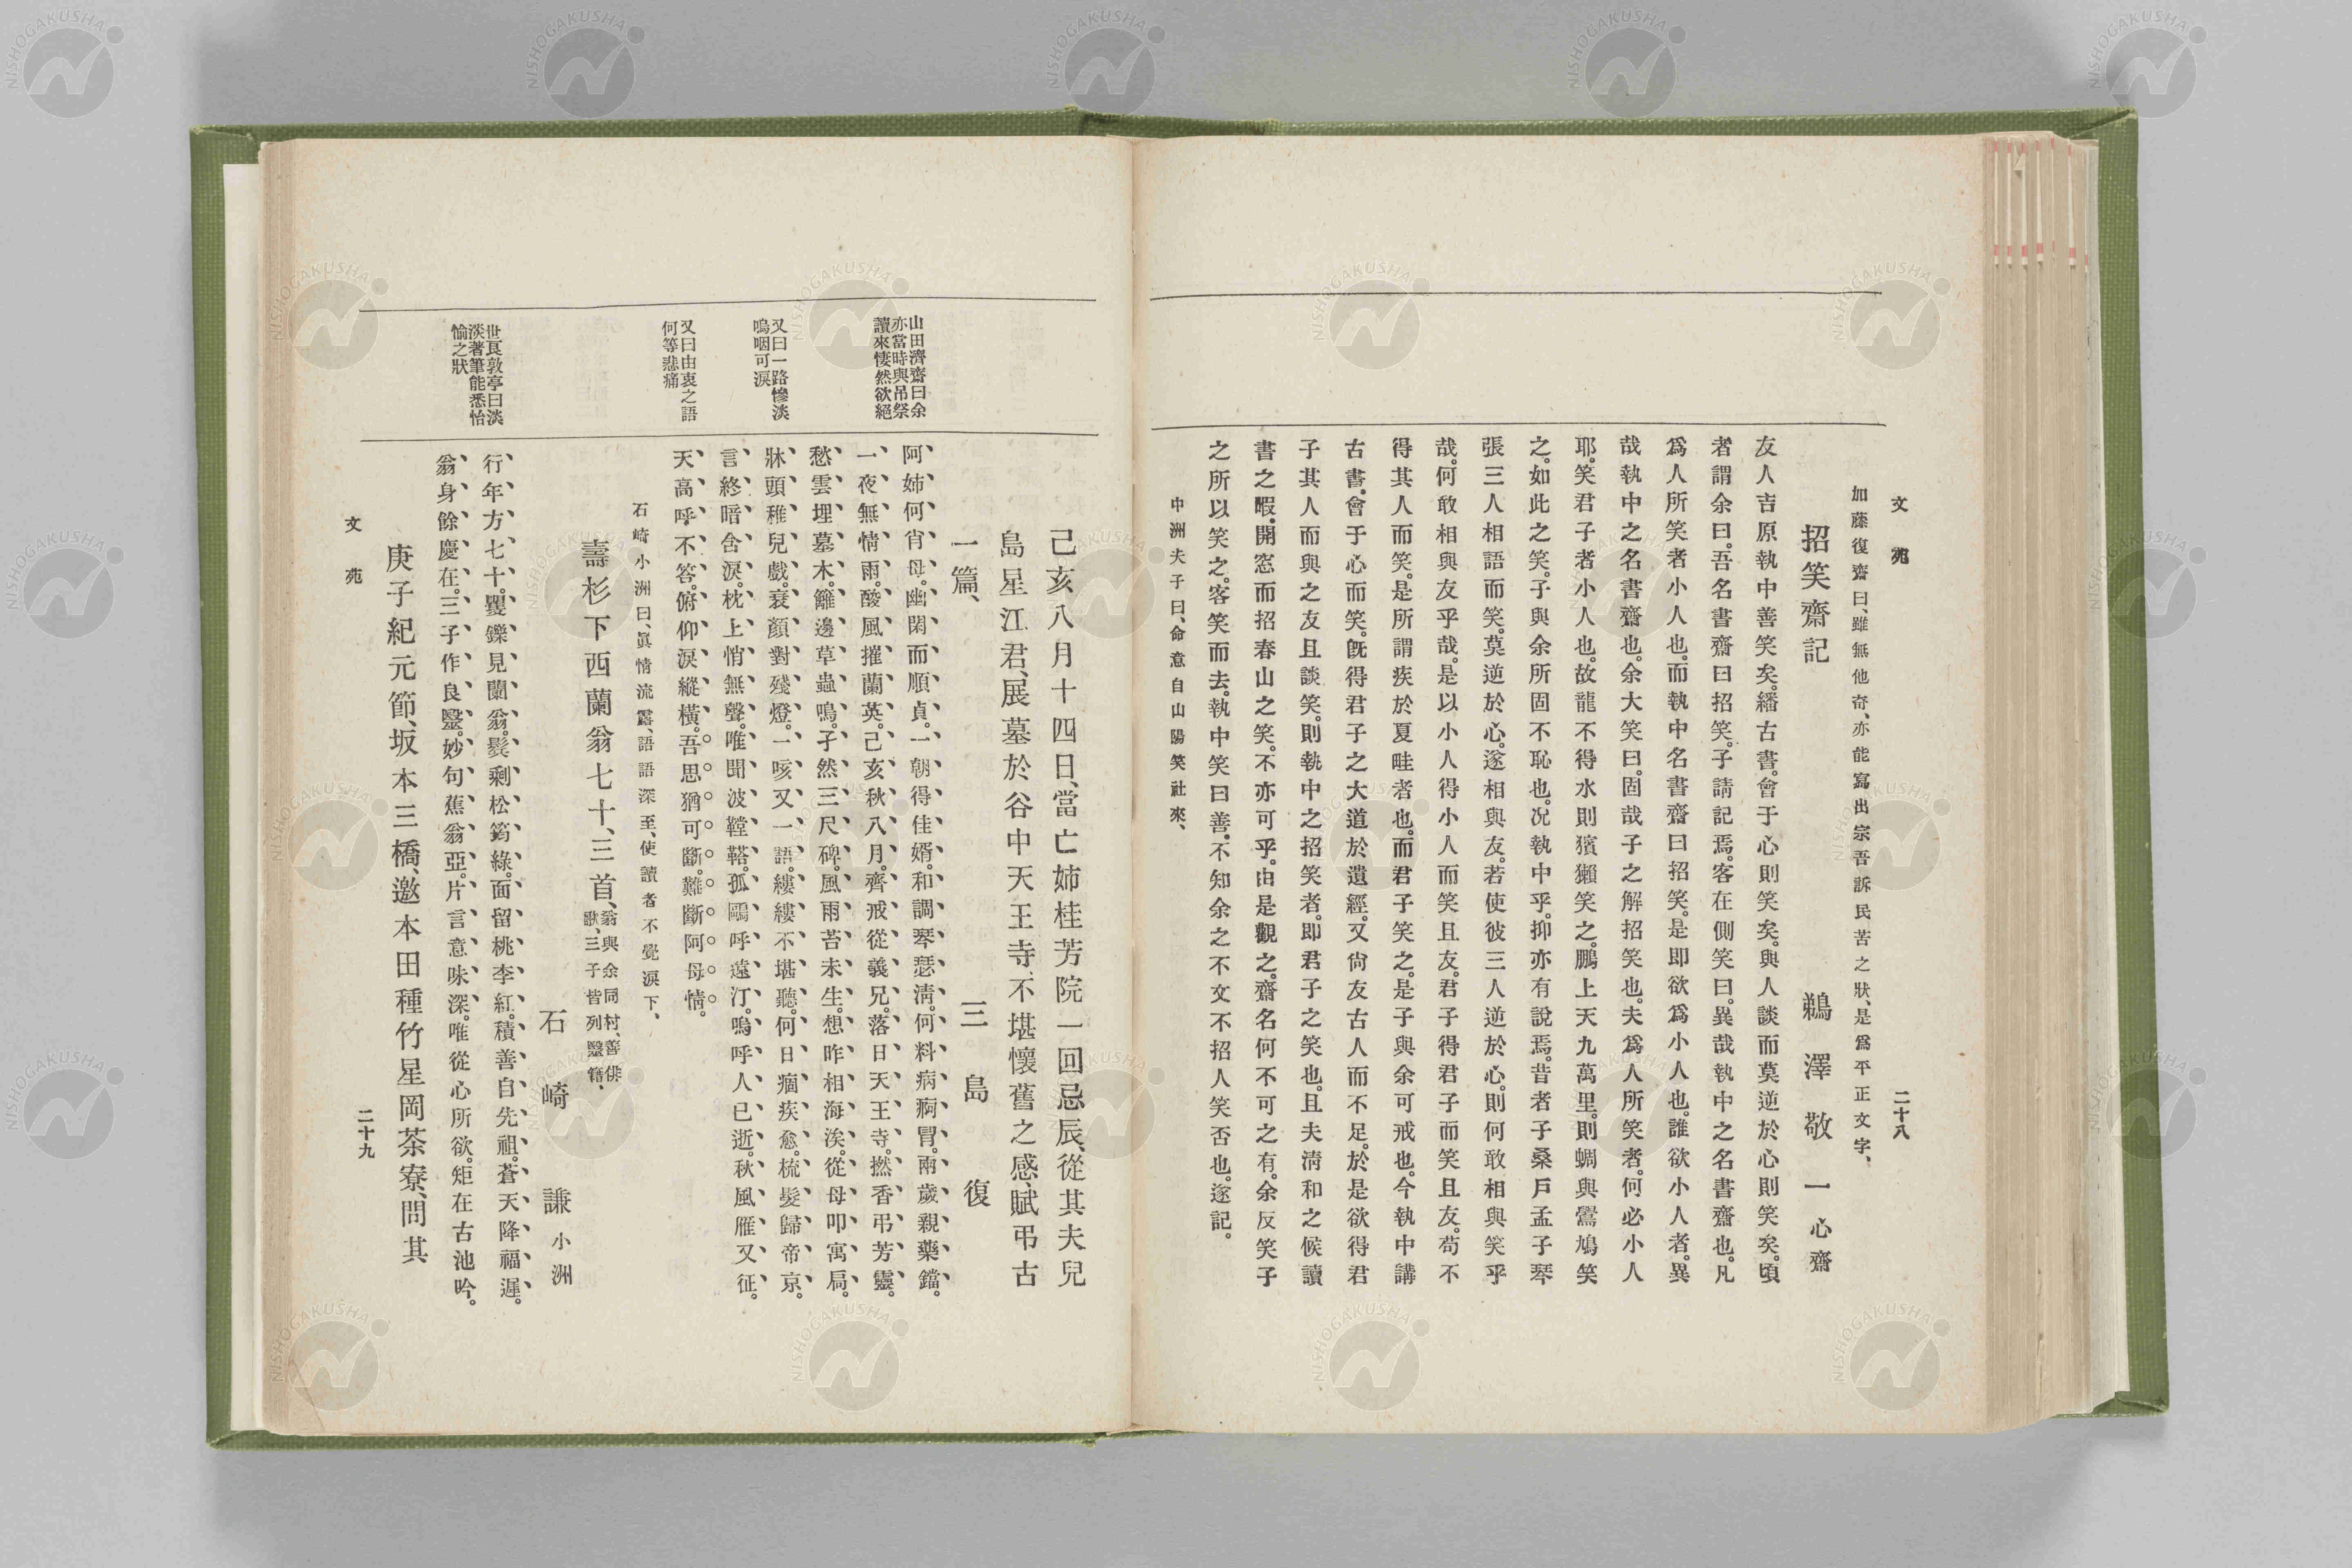 文苑
二十八
加藤復齋曰、雖無他奇、亦能寫出宗吾訴民苦之狀、是爲平正文字、
招笑齋記
鵜澤敬一心齋
友人吉原執中善笑矣。繙古書。會于心則笑矣。與人談而莫逆於心則笑矣。頃
者謂余曰。吾名書齋曰招笑。子請記焉。客在側笑曰。異哉執中之名書齋也。凡
爲人所笑者小人也。而執中名書齋曰招笑。是即欲爲小人也。誰欲小人者。異
哉執中之名書齋也。余大笑曰。固哉子之解招笑也。夫爲人所笑者。何必小人
耶。笑君子者小人也。故龍不得水則獱獺笑之。鵬上天九萬里。則蜩與鷽鳩笑
之。如此之笑。子與余所固不恥也。况執中乎。抑亦有說焉。昔者子桑戶孟子琴
張三人相語而笑。莫逆於心。遂相與友。若使彼三人逆於心。則何敢相與笑乎
哉。何敢相與友乎哉。是以小人得小人而笑且友。君子得君子而笑且友。苟不
得其人而笑。是所謂疾於夏畦者也。而君子笑之。是子與余可戒也。今執中講
古書。會于心而笑。旣得君子之大道於遺經。又尙友古人而不足。於是欲得君
子其人而與之友且談笑。則執中之招笑者。即君子之笑也。且夫淸和之候讀
書之暇。開窓而招春山之笑。不亦可乎。由是觀之。齋名何不可之有。余反笑子
之所以笑之。客笑而去。執中笑曰善。不知余之不文不招人笑否也。遂記。
中洲夫子曰、命意自山陽笑社來、
己亥八月十四日、當亡姉桂芳院一回忌辰、從其夫兒
島星江君、展墓於谷中天王寺、不堪懷舊之感、賦弔古
一篇、
三島復
山田濟齋曰余
亦當時與吊祭
讀來悽然欲絕
阿姉何肖母。幽閑而順貞。一朝得佳婿。和調琴瑟淸。何料病痾冐。兩歲親藥鐺。
一夜無情雨。酸風摧蘭英。己亥秋八月。齊戒從義兄。落日天王寺。撚香弔芳靈。
愁雲埋墓木。籬邊草蟲鳴。孑然三尺碑。風雨苔未生。想昨相海涘。從母叩寓扃。
又曰一路慘淡
嗚咽可淚
牀頭稚兒戲。衰顏對殘燈。一咳又一語。縷縷不堪聽。何日痼疾愈。梳髮歸帝京。
言終暗舍淚。枕上悄無聲。唯聞波鞺鞳。孤鷗呼遠汀。嗚呼人已逝。秋風雁又征。
又曰由衷之語
何等悲痛
天高呼不答。俯仰淚縱橫。吾思猶可斷。難斷阿母情。
石崎小洲曰、眞情流露、語語深至、使讀者不覺淚下、
壽杉下西蘭翁七十、三首、翁與余同村、善俳
歌、三子皆列毉籍、
石崎謙小洲
世良敦亭曰淡
淡著筆能悉怡
愉之狀
行年方七十。矍鑠見蘭翁。髮剩松筠綠。面留桃李紅。積善自先祖。蒼天降福遲。
翁身餘慶在。三子作良毉。妙句蕉翁亞。片言意味深。唯從心所欲。矩在古池吟。
庚子紀元節、坂本三橋、邀本田種竹星岡茶寮、問其
文苑
二十九